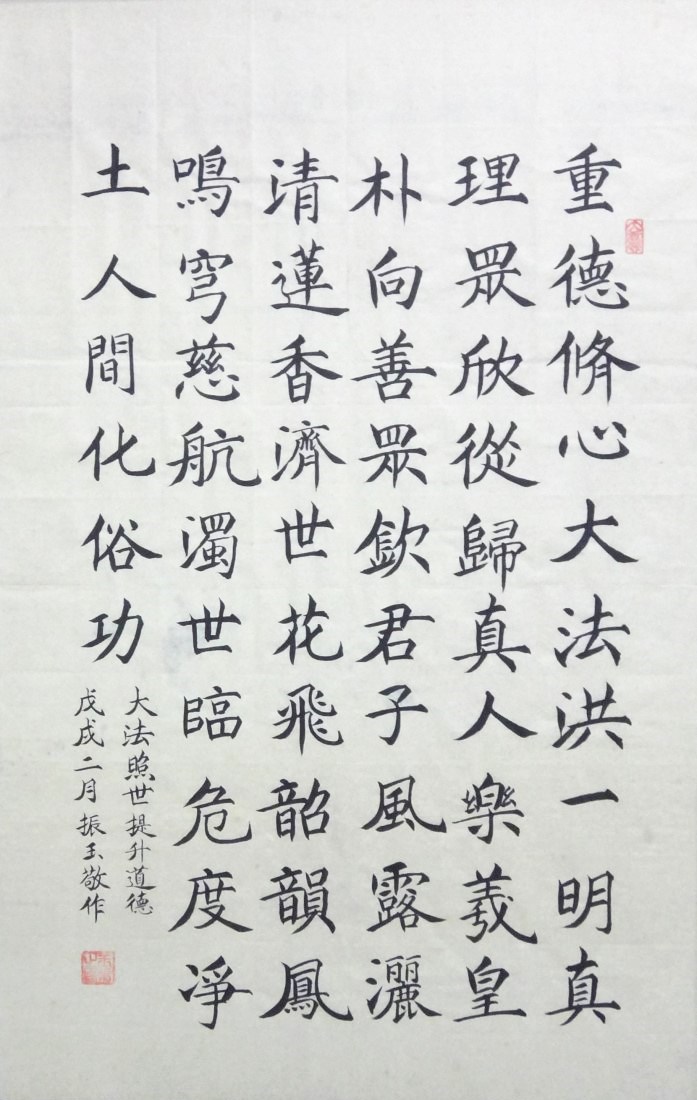 重德脩心大法洪一明真
理眾欣從歸真人樂羲皇
朴向善眾欽君子風露灑
清蓮香濟世花飛韶韻鳳
鳴穹慈航濁世臨危度凈
土人間化俗功
大法照世提升道德
戊戌二月振玉敬作